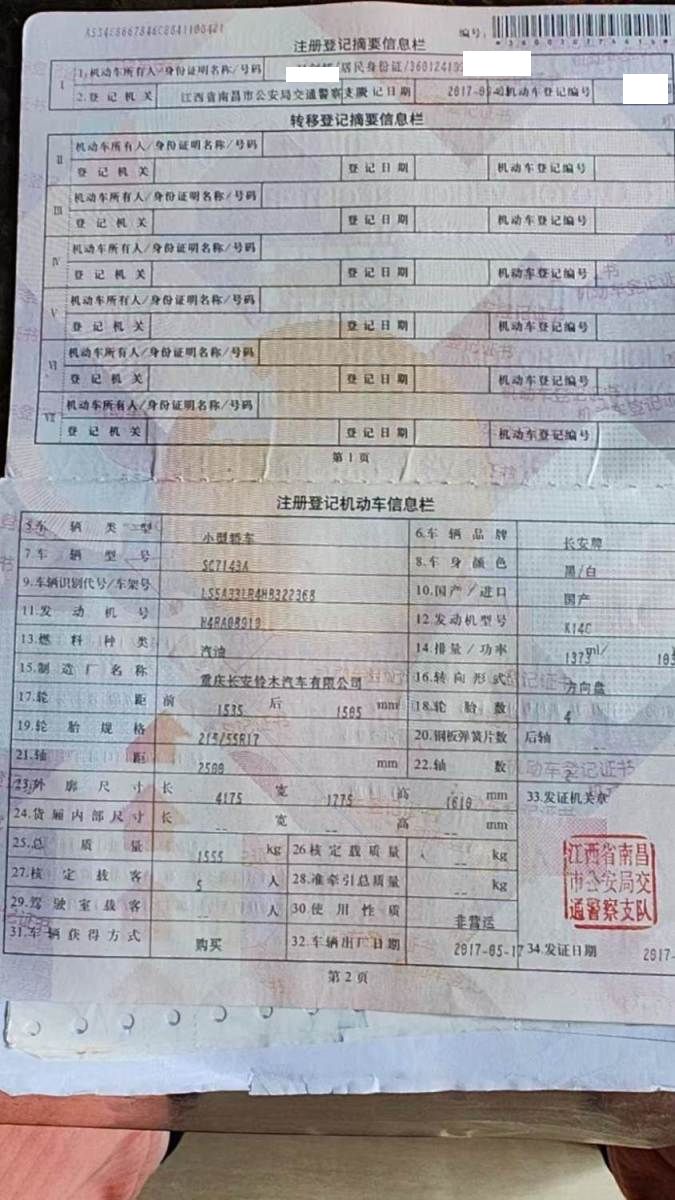 注册登记摘要信息栏
编号:
I 1.机动车所有人/身份证明名称/号码 居民身份证/
2.登记机关 江西省南昌市公安局交通警察支队 登记日期 机动车登记编号
转移登记摘要信息栏
II 机动车所有人/身份证明名称/号码
登记机关 登记日期 机动车登记编号
III 机动车所有人/身份证明名称/号码
登记机关 登记日期 机动车登记编号
IV 机动车所有人/身份证明名称/号码
登记机关 登记日期 机动车登记编号
V 机动车所有人/身份证明名称/号码
登记机关 登记日期 机动车登记编号
VI 机动车所有人/身份证明名称/号码
登记机关 登记日期 机动车登记编号
VII 机动车所有人/身份证明名称/号码
登记机关 登记日期 机动车登记编号
第1页
注册登记机动车信息栏
5.车辆类型 小型轿车 6.车辆品牌 长安牌
7.车辆型号 SC7143A 8.车身颜色 黑/白
9.车辆识别代号/车架号 10.国产/进口 国产
11.发动机号 12.发动机型号 K14C
13.燃料种类 汽油 14.排量/功率 1373 ml/
15.制造厂名称 重庆长安铃木汽车有限公司 16.转向形式 方向盘
17.轮距 前 1535 后 1505 mm 18.轮胎数 4
19.轮胎规格 215/55R17 20.钢板弹簧片数 后轴 --
21.轴距 2500 mm 22.轴数 2
23.外廓尺寸 长 4175 宽 1775 高 1610 mm 33.发证机关章
24.货厢内部尺寸 长 -- 宽 -- 高 -- mm
25.总质量 1555 kg 26.核定载质量 -- kg
27.核定载客 5 人 28.准牵引总质量 -- kg
29.驾驶室载客 -- 人 30.使用性质 非营运
31.车辆获得方式 购买 32.车辆出厂日期 2017-05-17 34.发证日期 2017-
江西省南昌
市公安局交
通警察支队
第2页